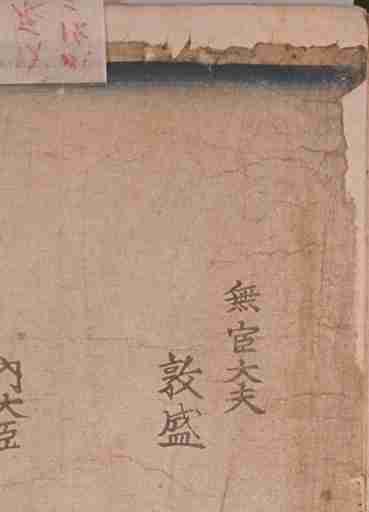 無官大夫
敦盛
内大臣